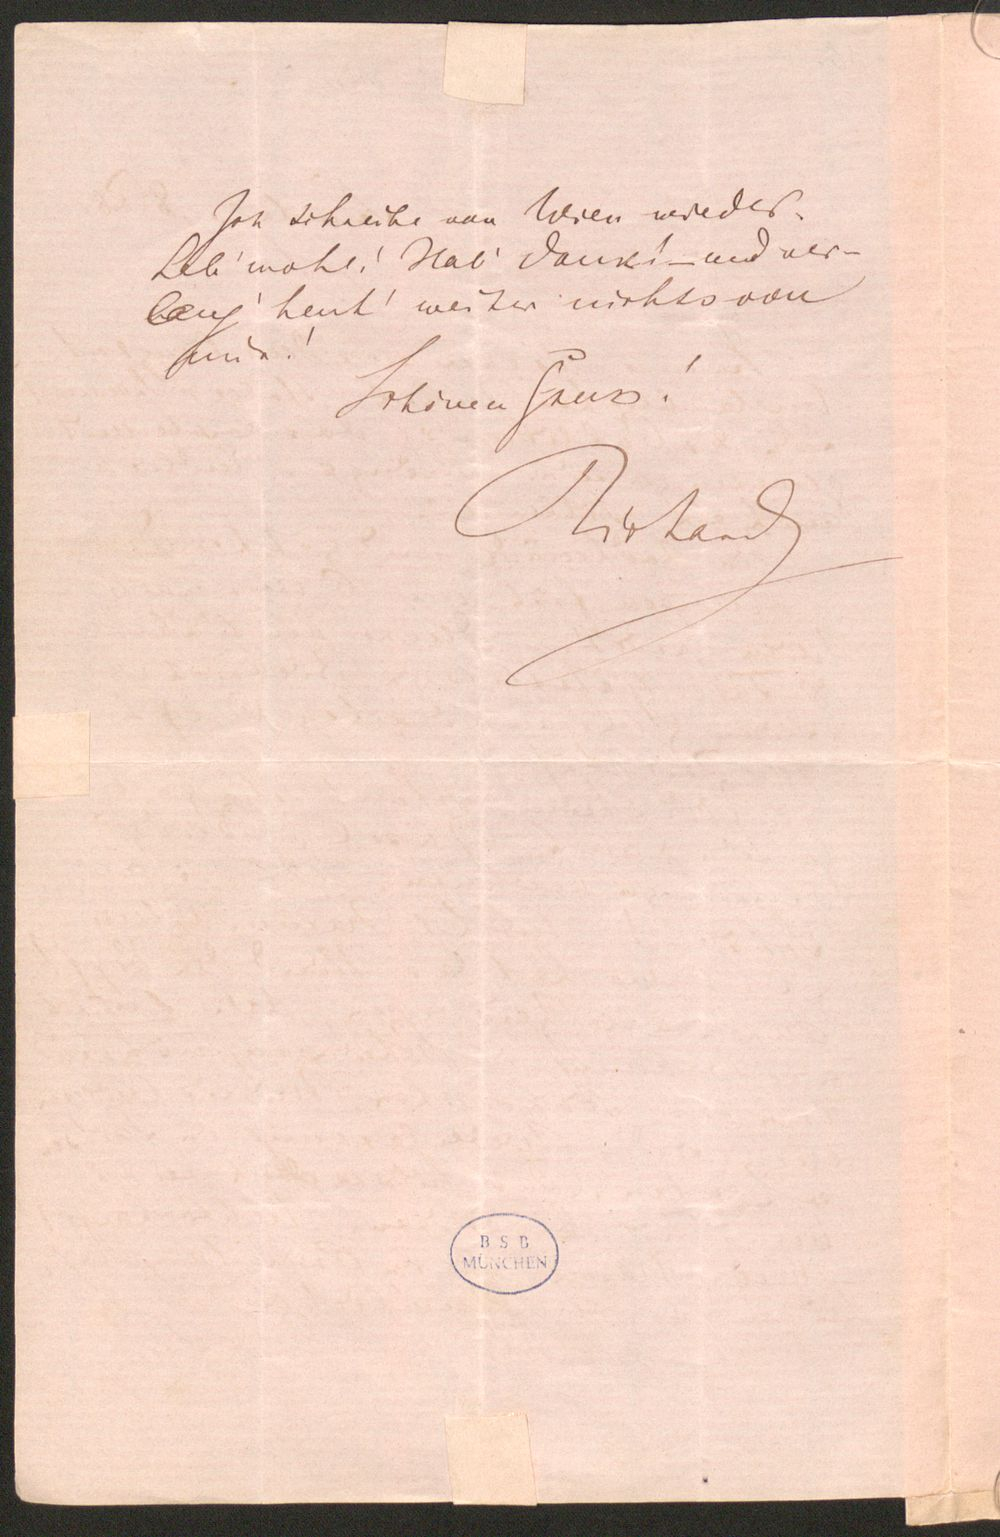 Ich schreibe von Wien wieder.
Leb' wohl! Hab' Dank! – und ver-
lang' heut' weiter nichts von
mir!
Schönen Gruss!
Richard
B S B
MÜNCHEN